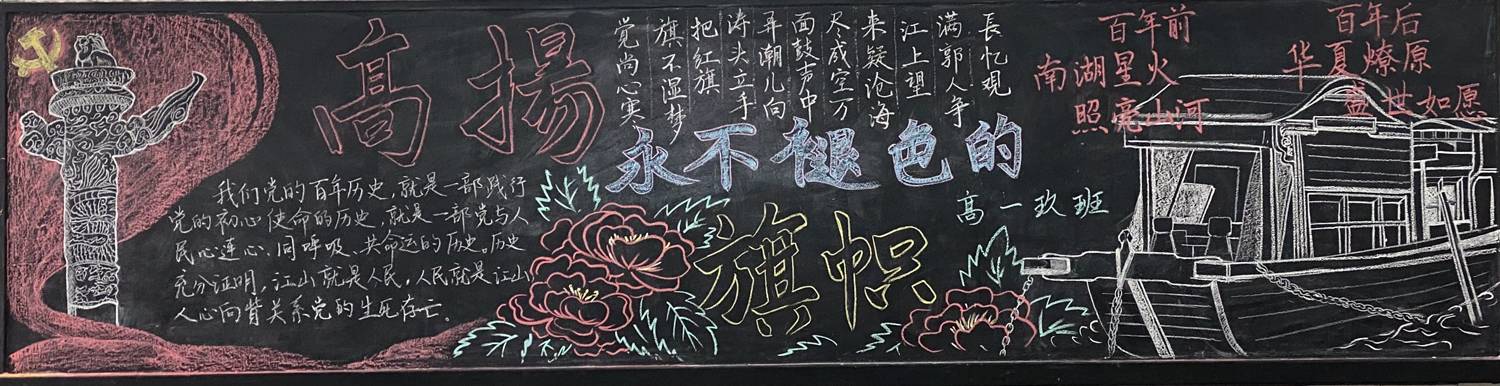 高揚
永不褪色的
旗帜
高一玖班
我们党的百年历史,就是一部践行
党的初心使命的历史,就是一部党与人
民心连心、同呼吸、共命运的历史。历史
充分证明,江山就是人民,人民就是江山
人心向背关系党的生死存亡。
長忆觀
满郭人争
江上望
来疑沧海
尽成空万
面鼓声中
弄潮儿向
涛头立手
把红旗
旗不湿梦
觉尚心寒
百年前
南湖星火
照亮山河
百年后
华夏燎原
盛世如愿